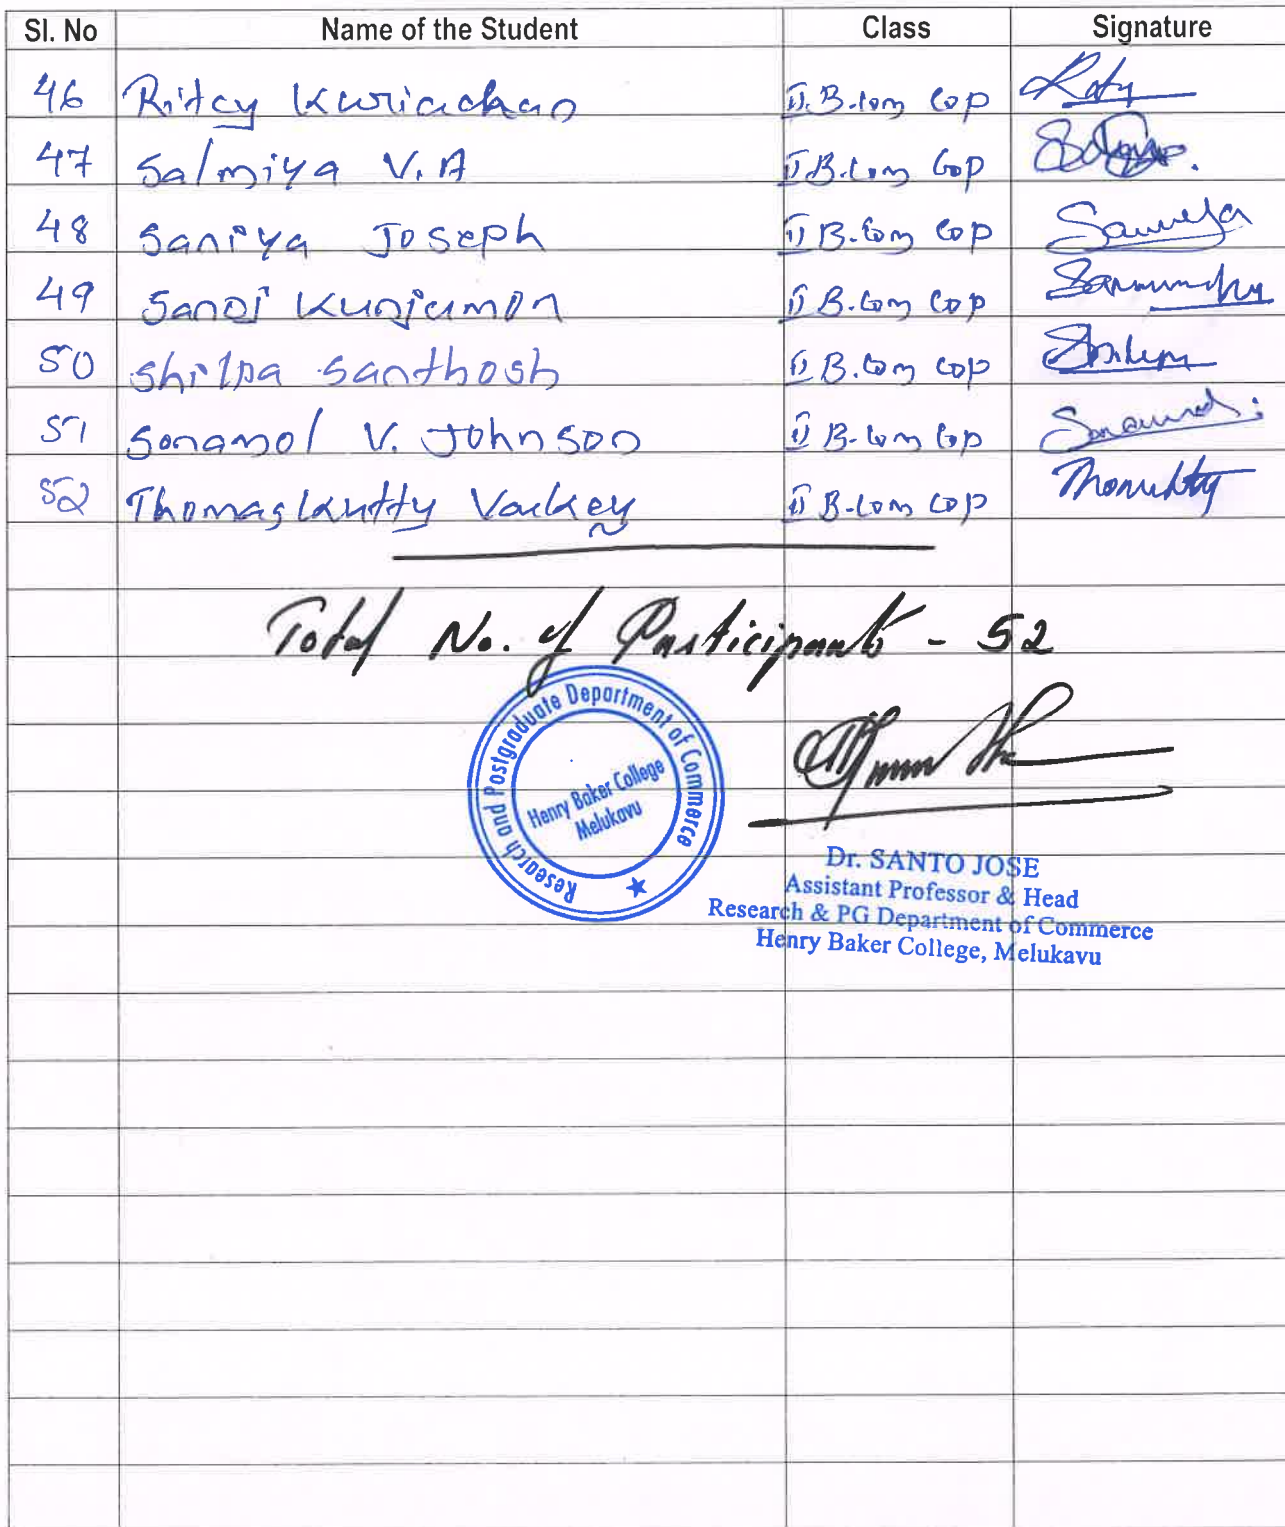 Sl. No Name of the Student Class Signature
46 Ritcy Kuriachan II B.Com Cop
47 Salmiya V.A II B.Com Cop
48 Saniya Joseph II B.Com Cop
49 Sanoj Kunjumon II B.Com Cop
50 Shilpa Santhosh II B.Com Cop
51 Sonamol V. Johnson II B.Com Cop
52 Thomaskutty Varkey II B.Com Cop
Total No. of Participants - 52
Research and Postgraduate Department of Commerce
Henry Baker College
Melukavu
Dr. SANTO JOSE
Assistant Professor & Head
Research & PG Department of Commerce
Henry Baker College, Melukavu